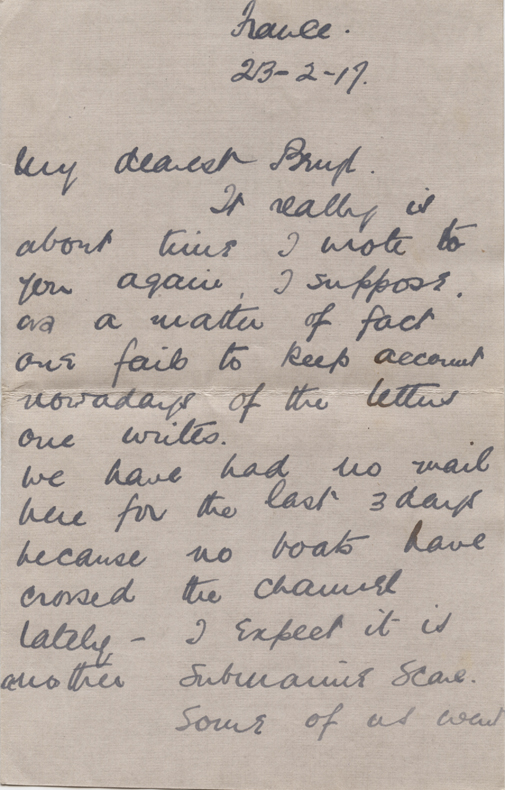 France.
23-2-17.
My dearest
It really is
about time I wrote to
you again, I suppose.
as a matter of fact
one fails to keep account
nowadays of the letters
one writes.
We have had no mail
here for the last 3 days
because no boats have
crossed the channel
lately - I Expect it is
another Submarine Scare.
Some of us went